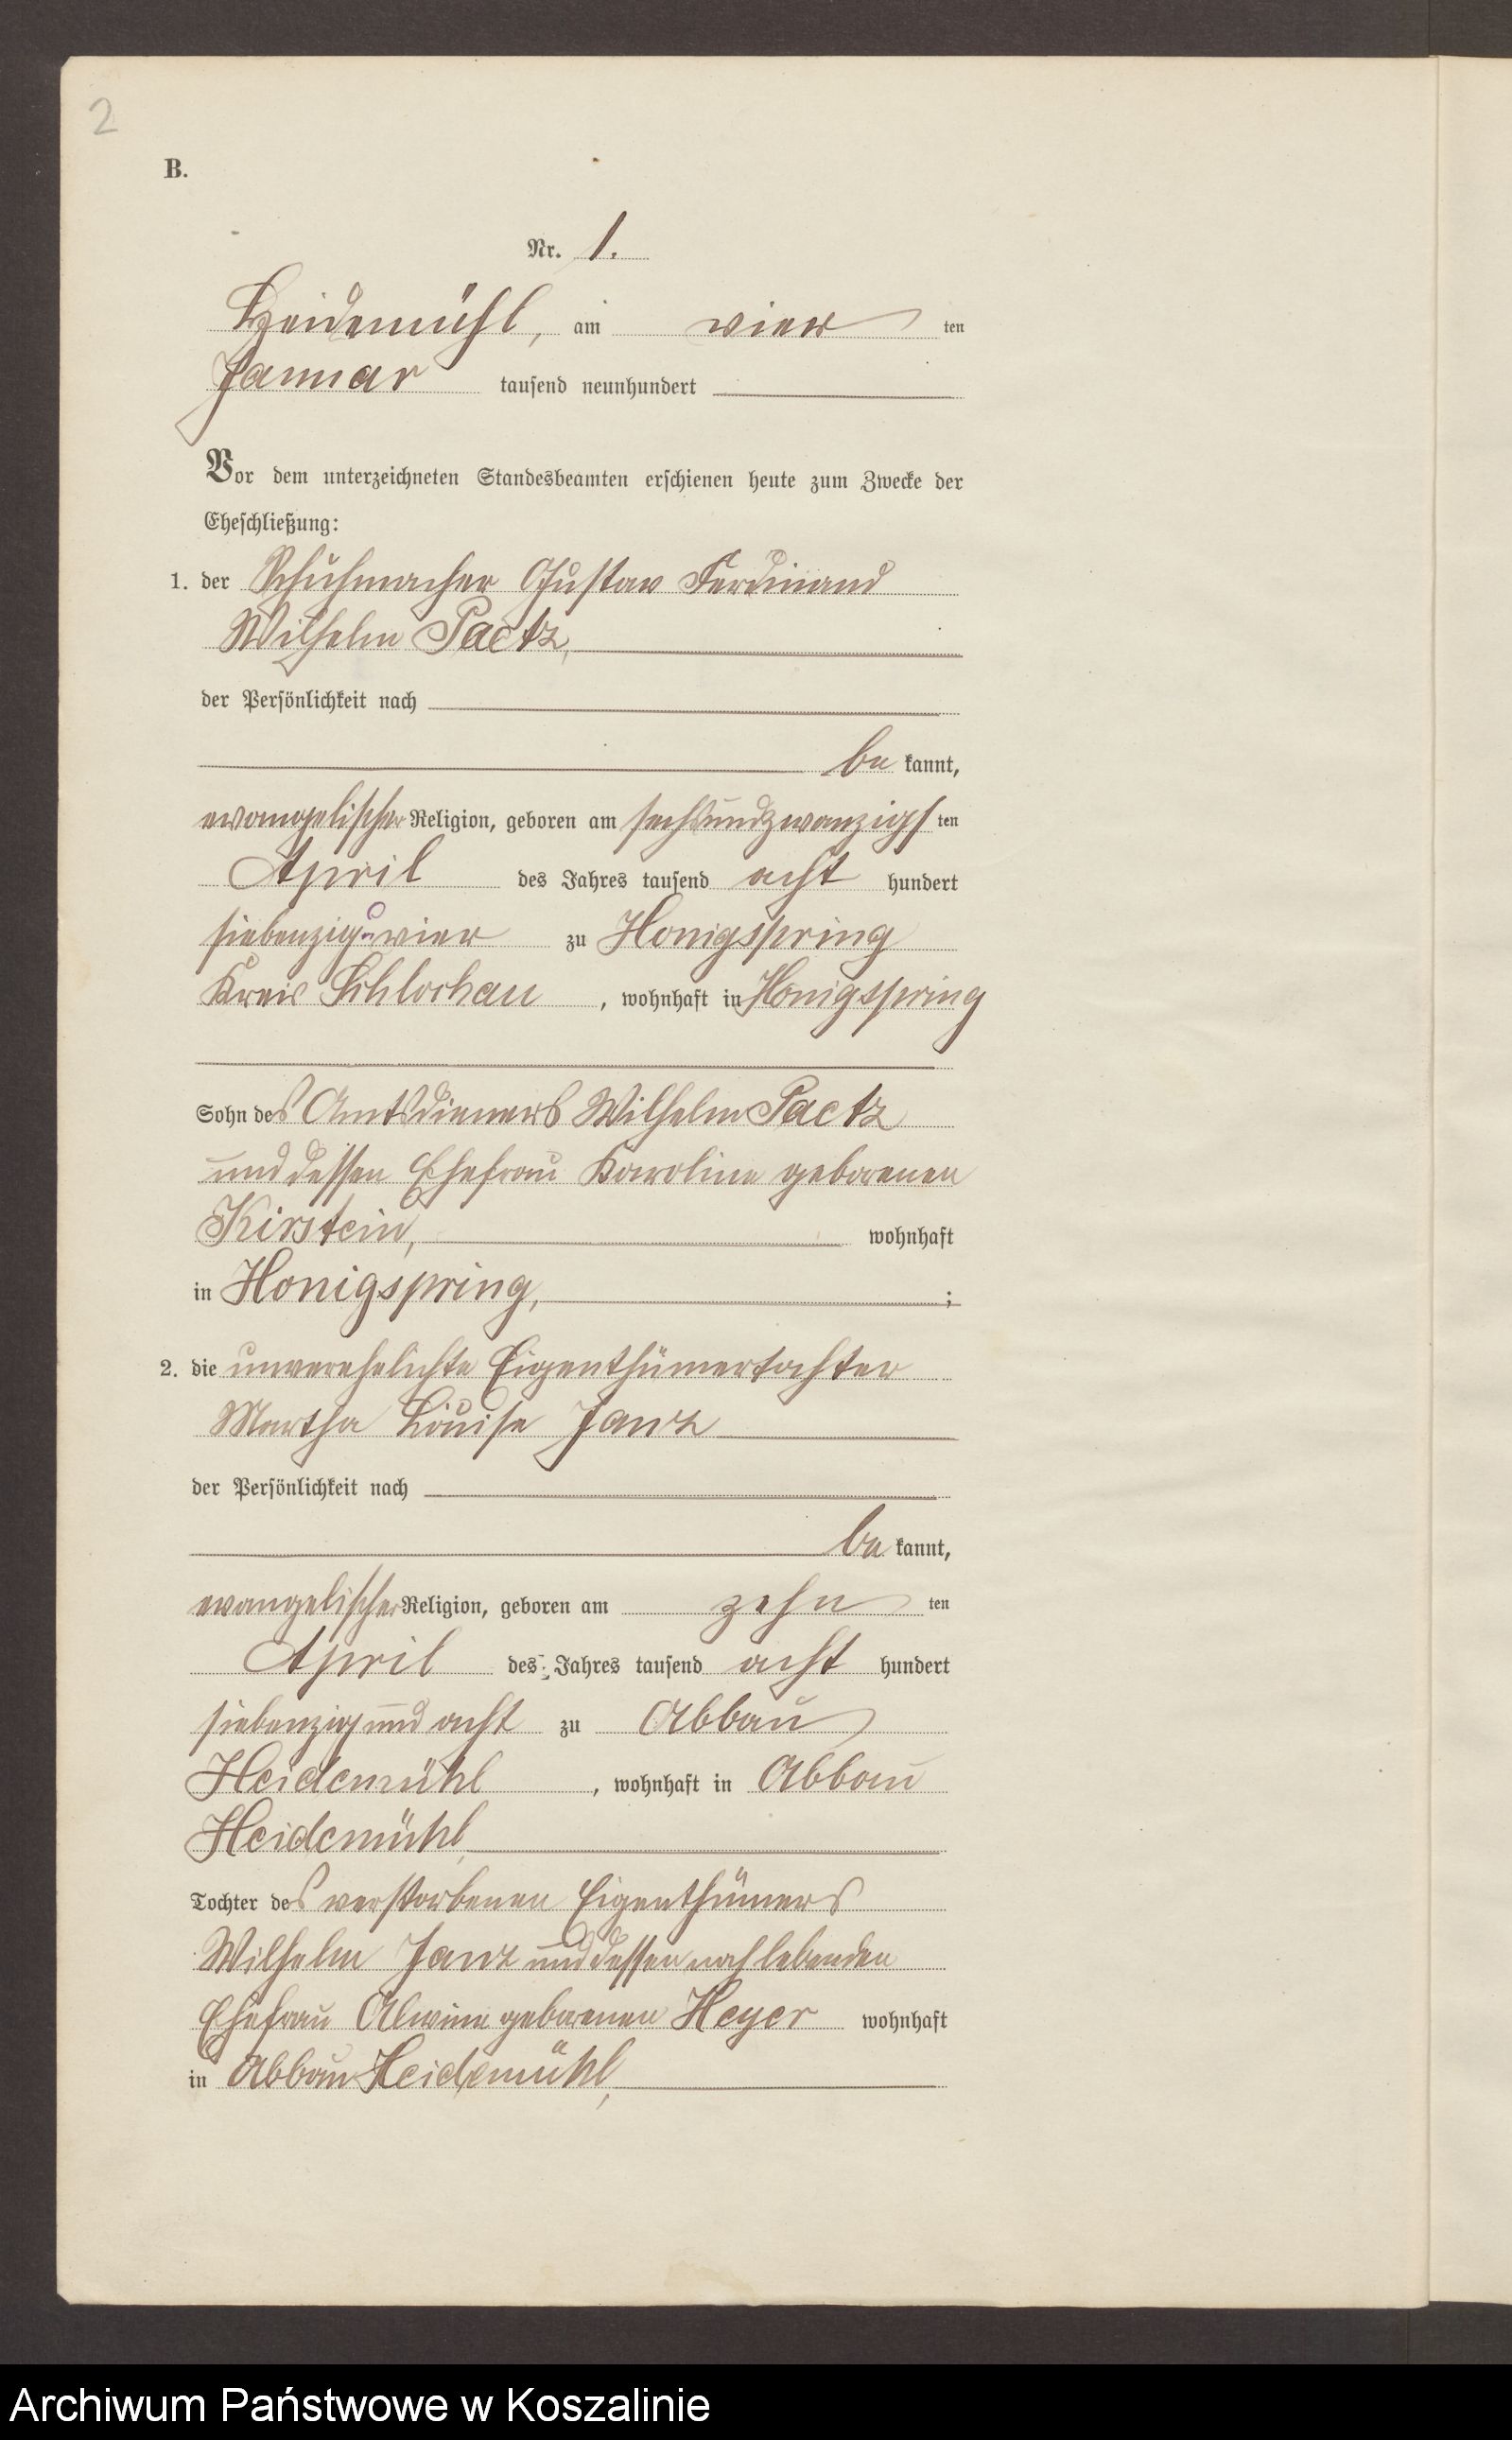 2
B.
Nr. 1.
Heidemühl, am vier ten
Januar tausend neunhundert
Vor dem unterzeichneten Standesbeamten erschienen heute zum Zwecke der
Eheschließung:
1. der Schuhmacher Gustav Ferdinand
Wilhelm Paetz,
der Persönlichkeit nach
be kannt,
evangelischer Religion, geboren am sechsundzwanzigs ten
April des Jahres tausend acht hundert
siebenzig u vier zu Honigspring
Kreis Schlochau, wohnhaft in Honigspring
Sohn des Amtsdieners Wilhelm Paetz
und dessen Ehefrau Karoline geborenen
Kirstein, wohnhaft
in Honigspring, ;
2. die unverehelichte Eigenthümertochter
Martha Louise Janz
der Persönlichkeit nach
be kannt,
evangelischer Religion, geboren am zehn ten
April des Jahres tausend acht hundert
siebenzig und acht zu Abbau
Heidemühl, wohnhaft in Abbau
Heidemühl,
Tochter des verstorbenen Eigenthümers
Wilhelm Janz und dessen noch lebenden
Ehefrau Alwine geborenen Heyer wohnhaft
in Abbau Heidemühl,
Archiwum Państwowe w Koszalinie